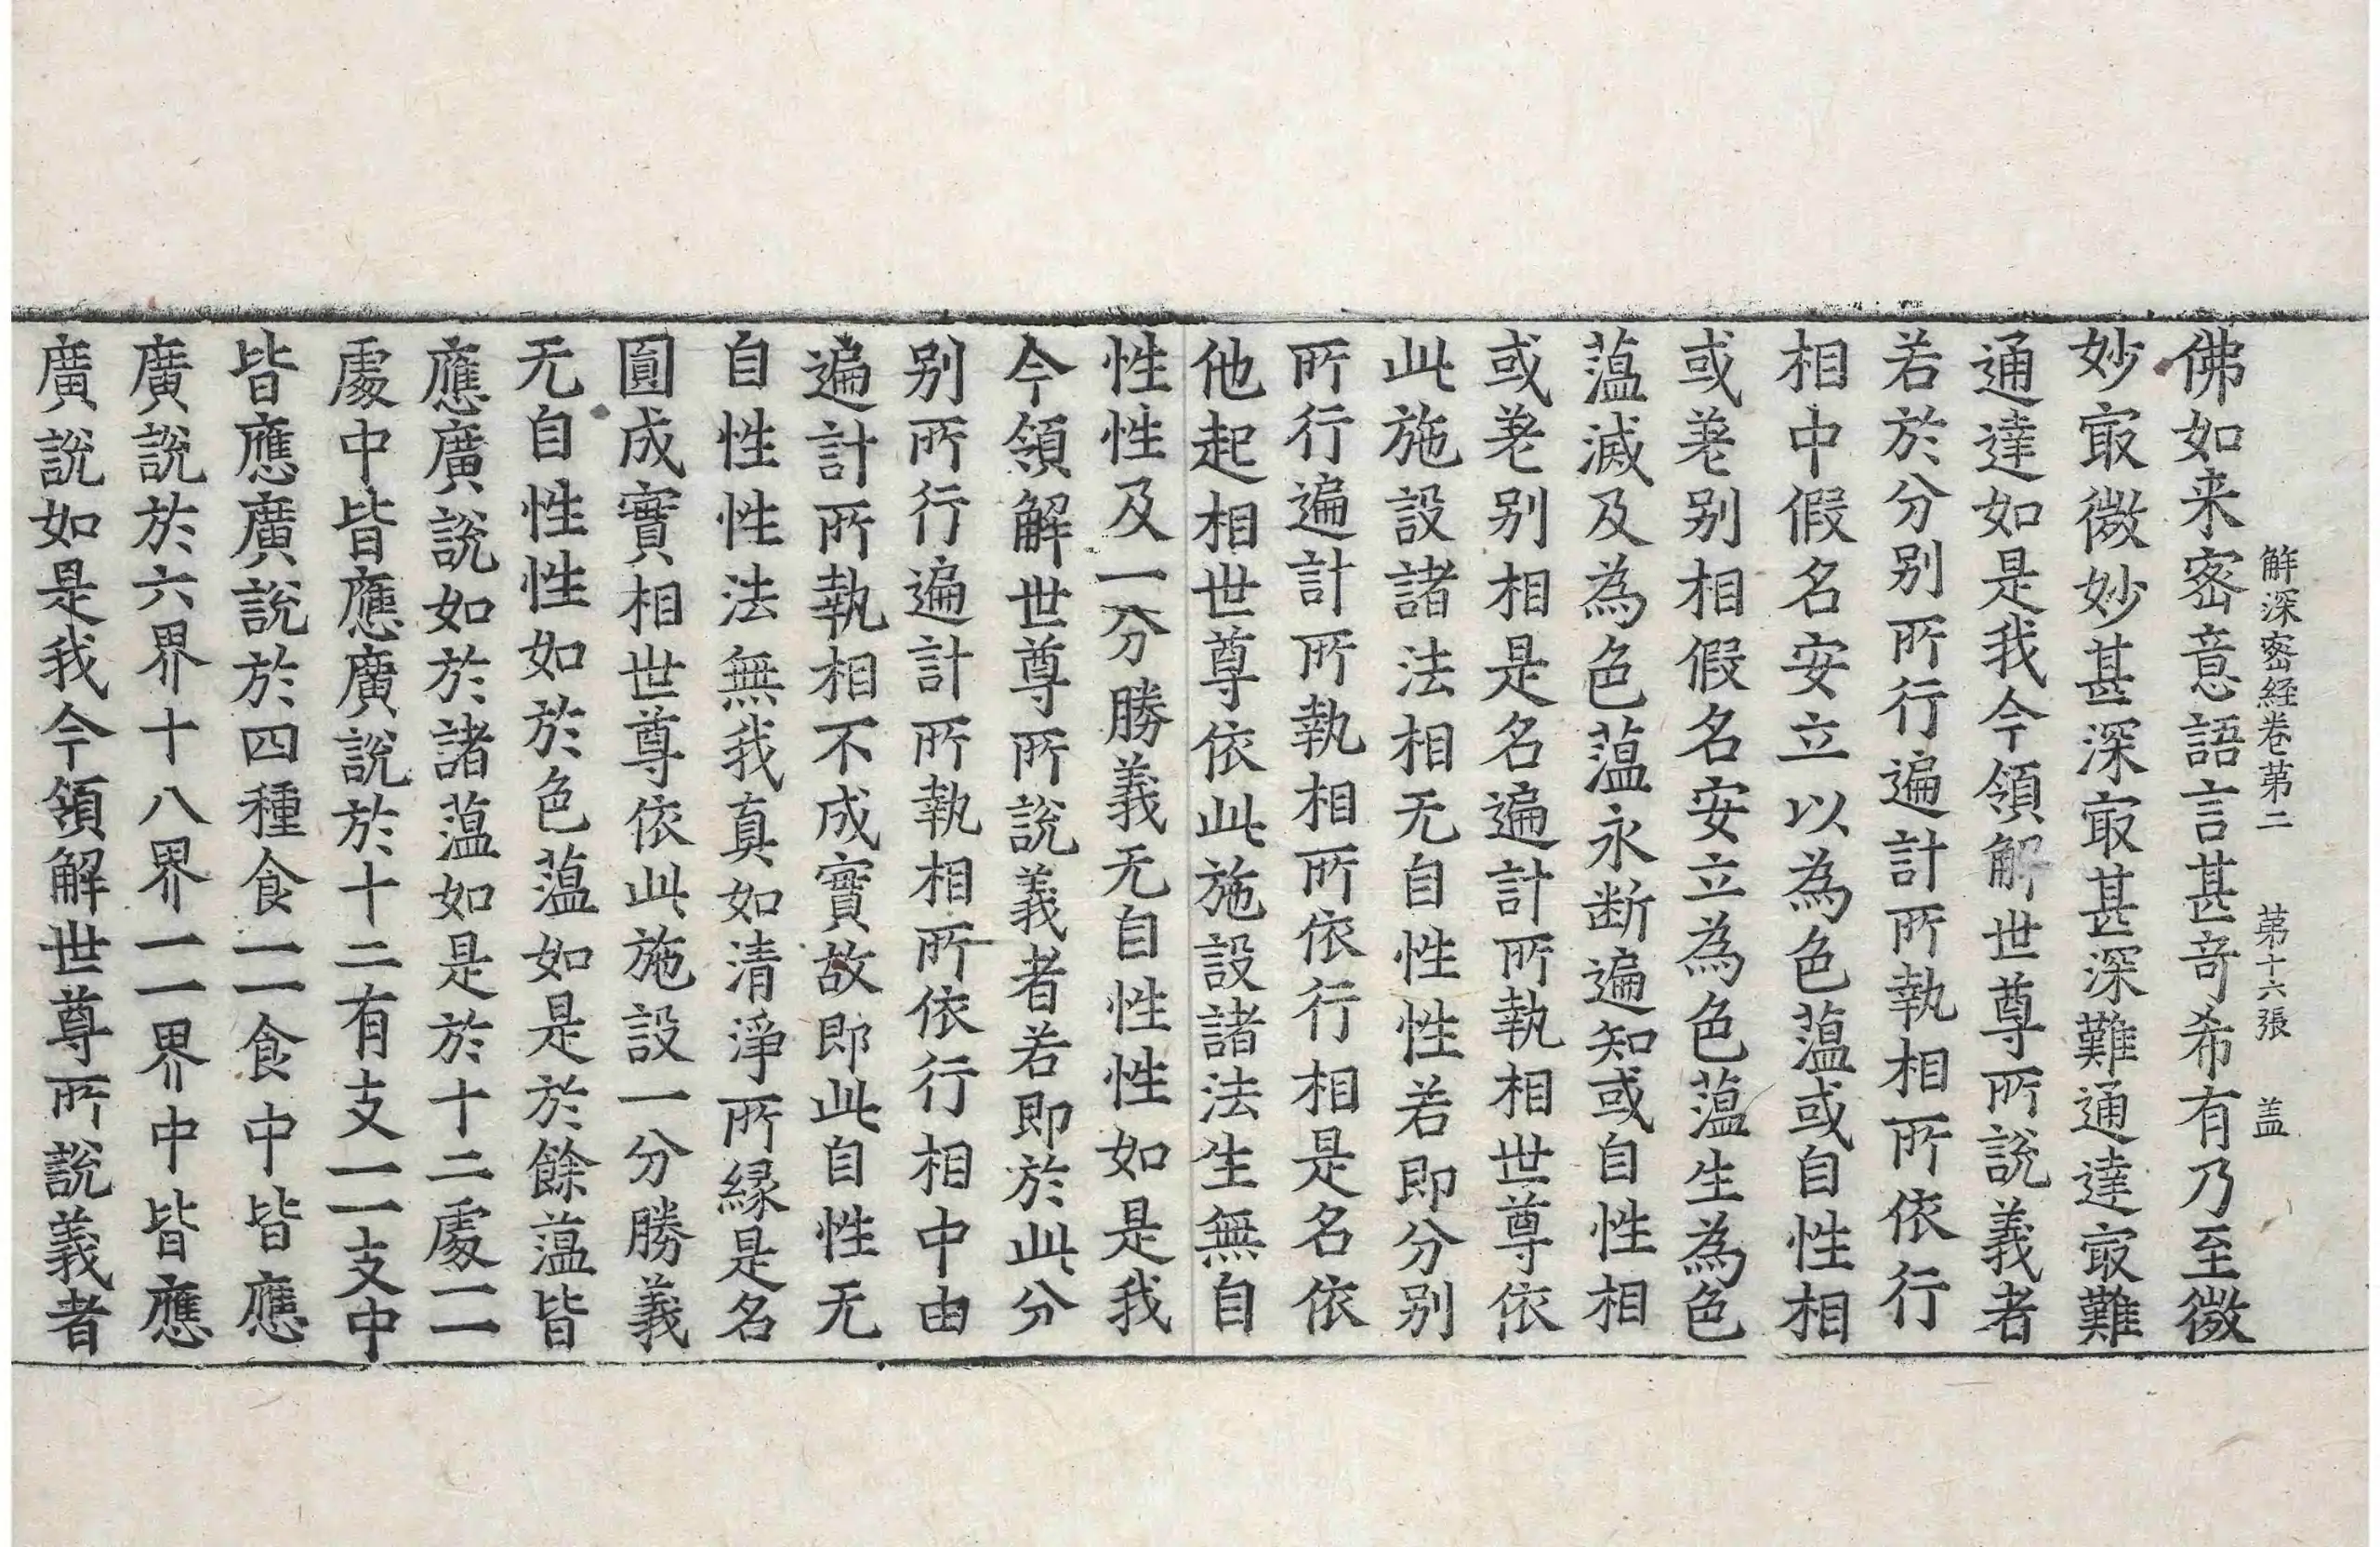 解深密経卷苐二　苐十六張　盖
佛如来密意語言甚竒希有乃至微
妙㝡微妙甚深㝡甚深難通達㝡難
通達如是我今領解世尊所說義者
若於分别所行遍計所執相所依行
相中假名安立以為色蕰或自性相
或差别相假名安立為色蕰生為色
蕰滅及為色蕰永断遍知或自性相
或差别相是名遍計所執相世尊依
此施設諸法相无自性性若即分别
所行遍計所執相所依行相是名依
他起相世尊依此施設諸法生無自
性性及一分勝義无自性性如是我
今領解世尊所說義者若即於此分
别所行遍計所執相所依行相中由
遍計所執相不成實故即此自性无
自性性法無我真如清淨所緣是名
圎成實相世尊依此施設一分勝義
无自性性如於色蕰如是於餘蕰皆
應廣說如於諸蕰如是於十二處一一
處中皆應廣說於十二有支一一支中
皆應廣說於四種食一一食中皆應
廣說於六界十八界一一界中皆應
廣說如是我今領解世尊所說義者